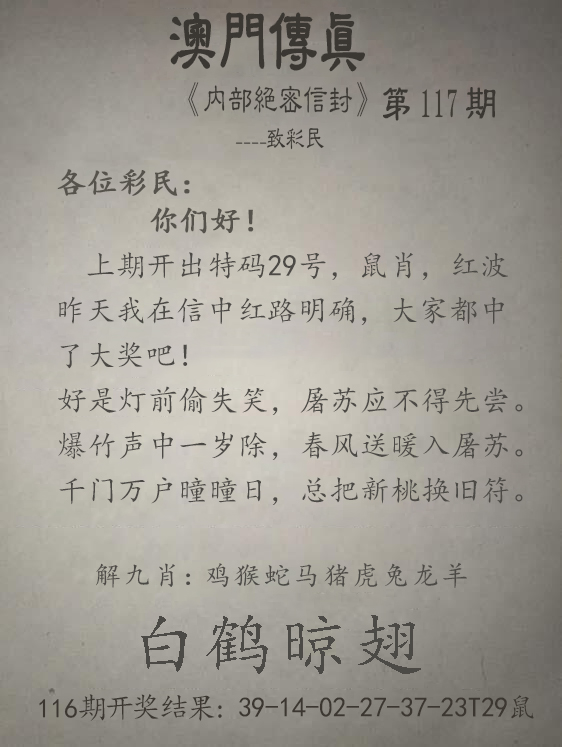 澳門傳真
《内部絕密信封》第117期
----致彩民
各位彩民：
你们好！
上期开出特码29号，鼠肖，红波
昨天我在信中红路明确，大家都中
了大奖吧！
好是灯前偷失笑，屠苏应不得先尝。
爆竹声中一岁除，春风送暖入屠苏。
千门万户曈曈日，总把新桃换旧符。
解九肖：鸡猴蛇马猪虎兔龙羊
白鹤晾翅
116期开奖结果：39-14-02-27-37-23T29鼠